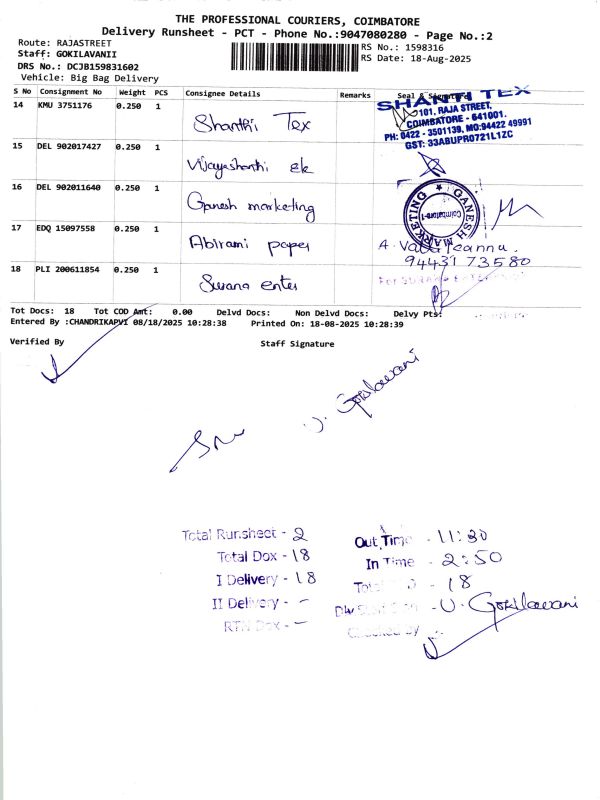 THE PROFESSIONAL COURIERS, COIMBATORE
Delivery Runsheet - PCT - Phone No.:9047080280 - Page No.:2
Route: RAJASTREET
Staff: GOKILAVANII
DRS No.: DCJB159831602
Vehicle: Big Bag Delivery
RS No.: 1598316
RS Date: 18-Aug-2025
S No Consignment No Weight PCS Consignee Details Remarks Seal &
14 KMU 3751176 0.250 1 Shanthi Tex
SHANTHI TEX
101, RAJA STREET,
COIMBATORE - 641001.
PH: 0422 - 3501139, MO:94422 49991
GST: 33ABUPR0721L1ZC
15 DEL 902017427 0.250 1 Vijayashanthi ek
16 DEL 902011640 0.250 1 Ganesh marketing
GANESH MARKETING
Coimbatore-1
17 EDQ 15097558 0.250 1 Abirami paper
94431 73580
18 PLI 200611854 0.250 1 Surana enter
Tot Docs: 18 Tot COD Amt: 0.00 Delvd Docs: Non Delvd Docs: Delvy Pts:
Entered By :CHANDRIKAPVI 08/18/2025 10:28:38 Printed On: 18-08-2025 10:28:39
Verified By Staff Signature
U. Gokilavani
Total Runsheet - 2
Total Dox - 18
I Delivery - 18
II Delivery - -
RTN Dox - -
Out Time - 11:30
In Time - 2:50
Total - 18
- U. Gokilavani
Checked by